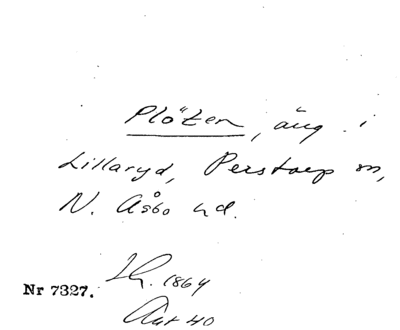 Plöten, äng i
Lillaryd, Perstorp sn,
N. Åsbo hd.
1864
Nr 7327.
Akt 40